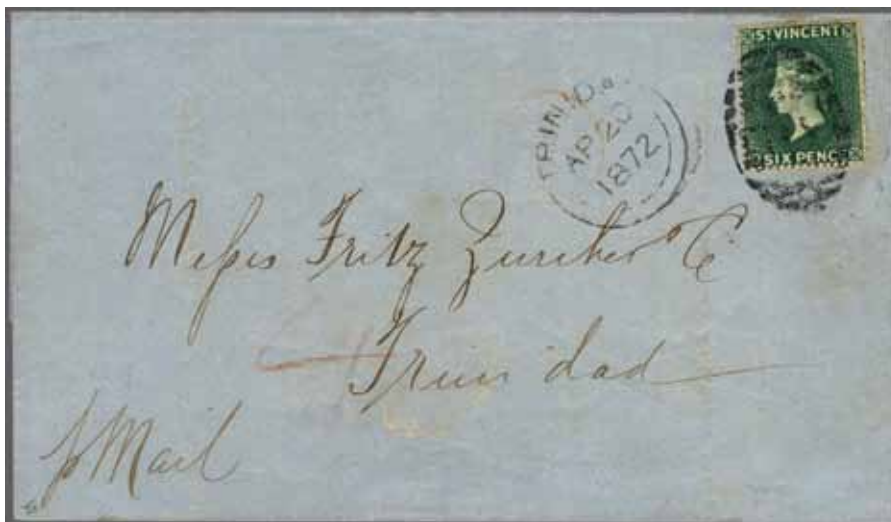 ST VINCENT
SIX PENCE
TRINIDAD
AP 20
1872
Messrs Fritz Zurcher & Co
Trinidad
p Mail